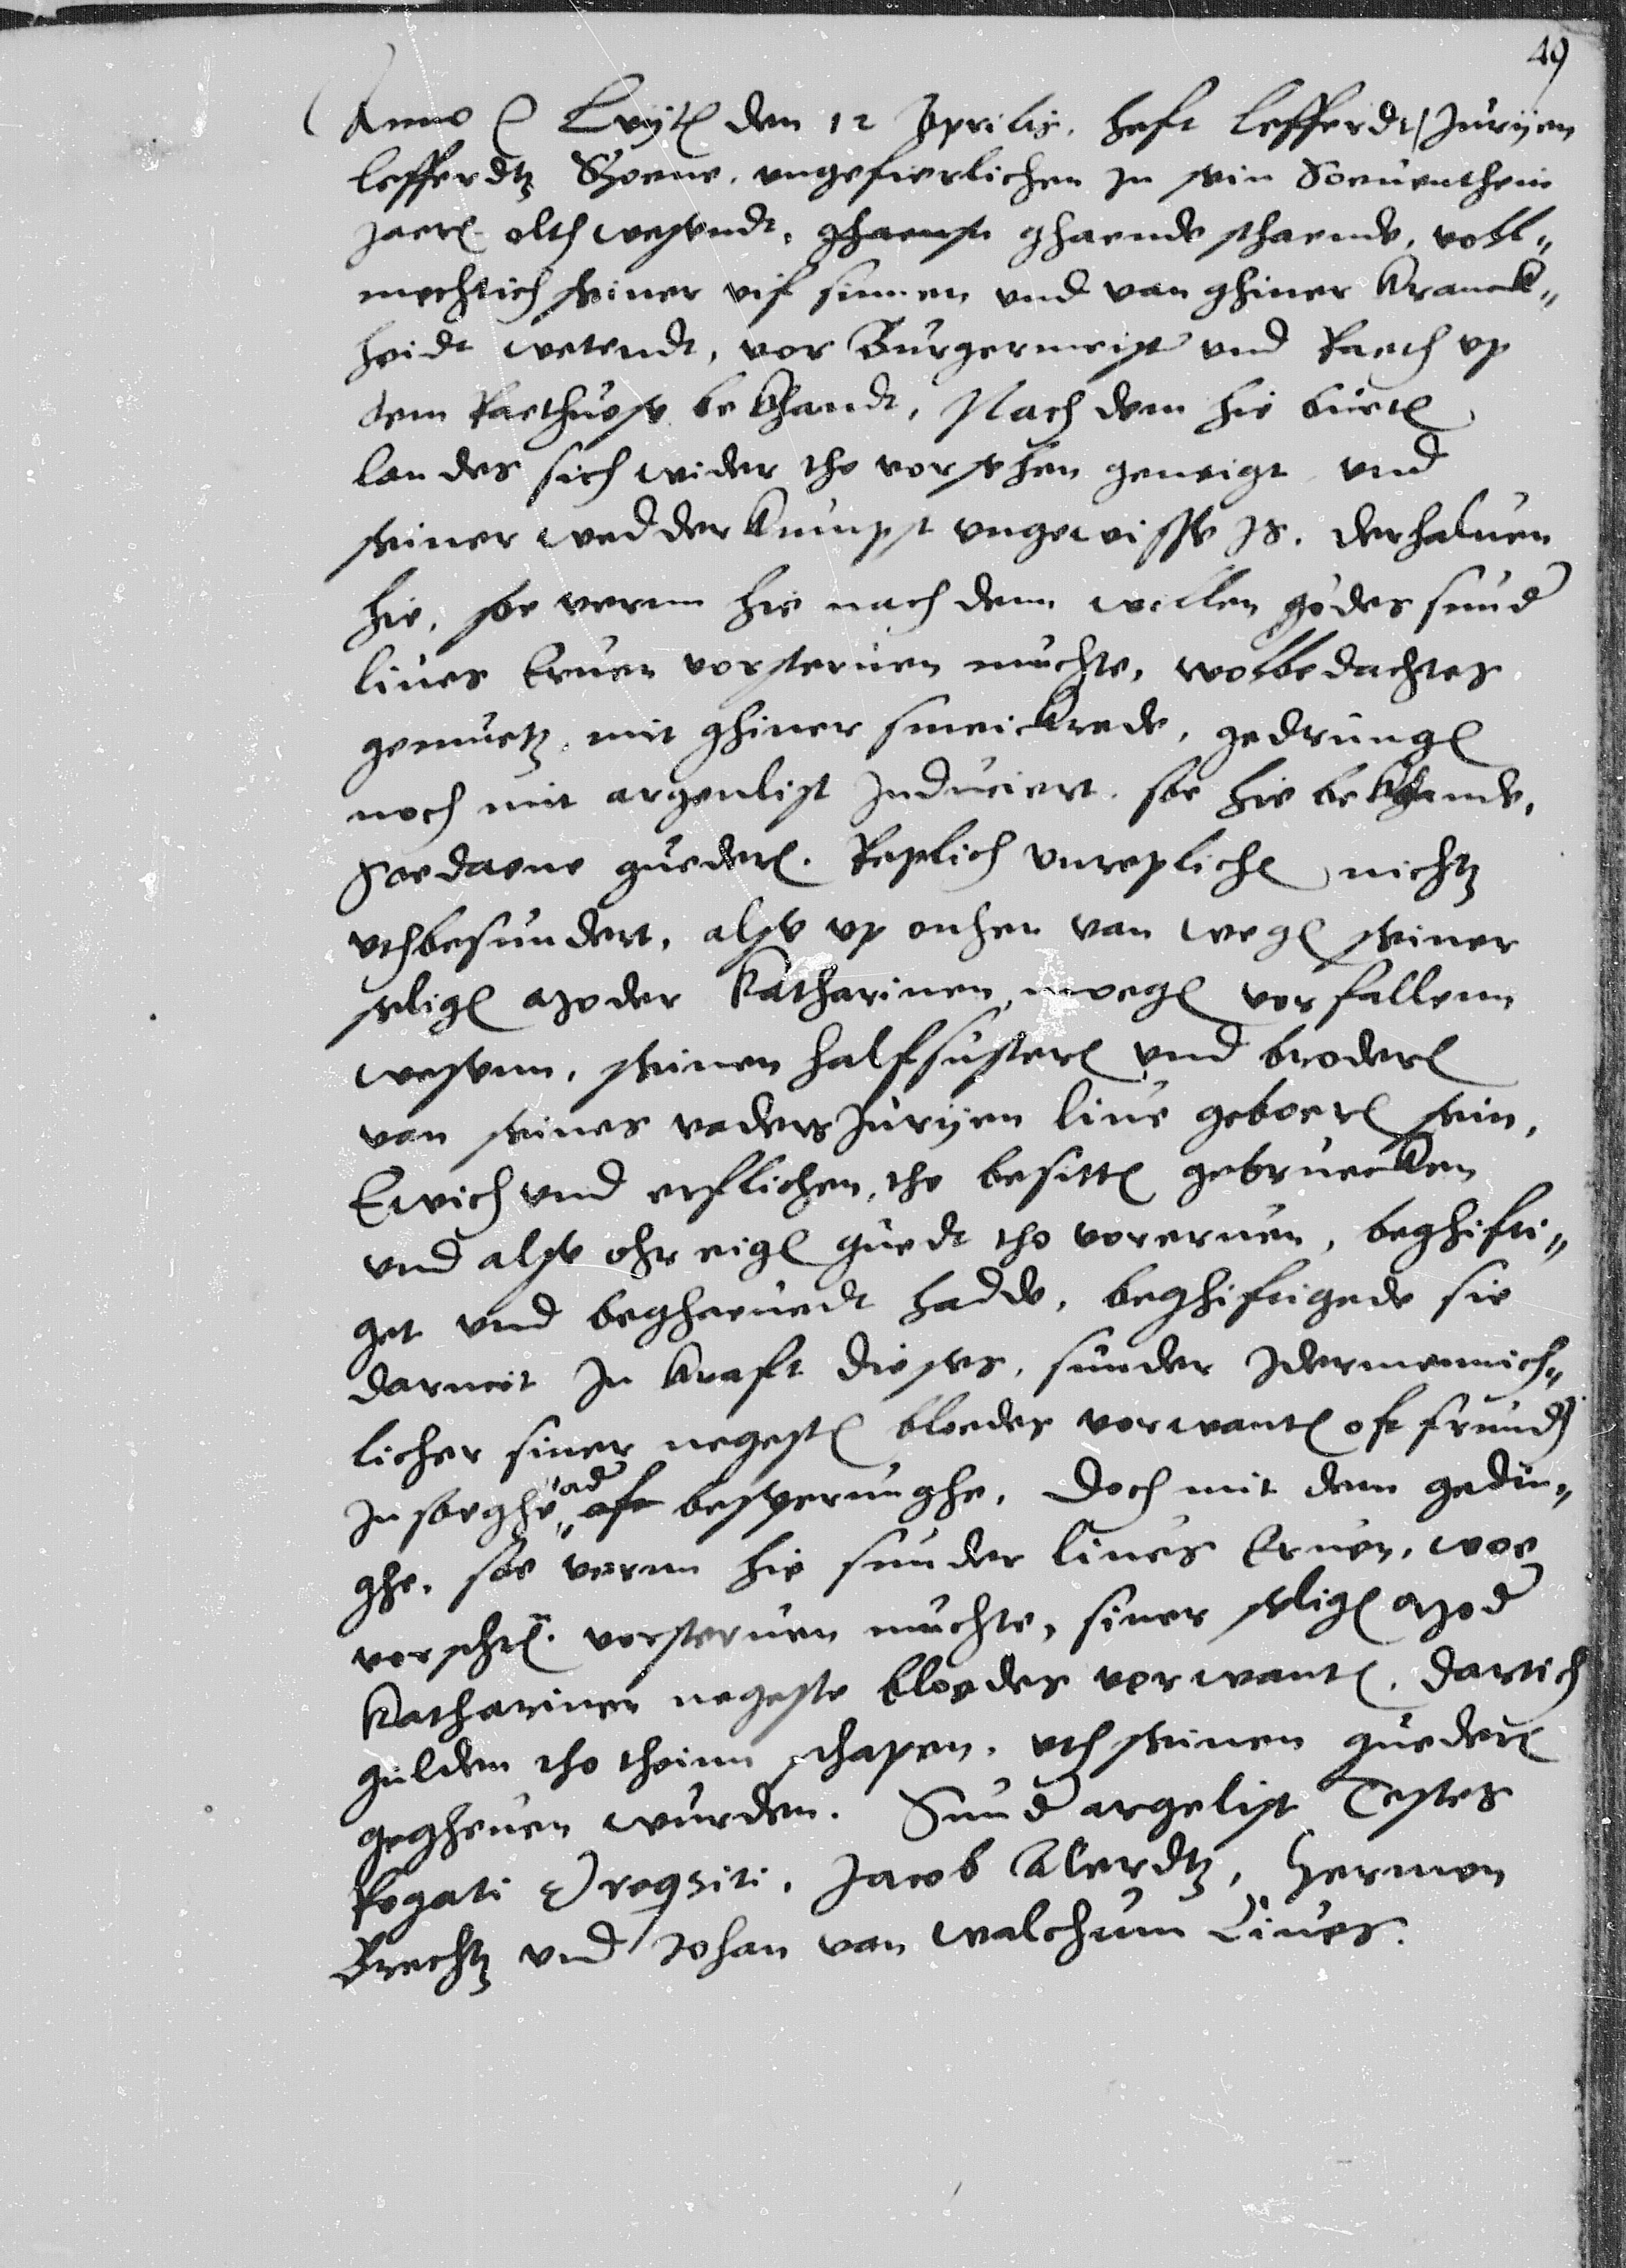 49
Anno  Lvijt den 12 Aprilis. heft Lefferdt Jurijen
Lefferdtz Shoene. ungefierlichen jn sein Soeuenthein
jaere olth wesendt, ghaense ghaende sthaende, voll-
mechtich seiner vif sinnen und van ghiner kranck-
heidt wetendt, vor Burgermeister und Raeth up
dem Raethuese bekhandt, Nach dem hie buete
landes sich wider tho vorsehen geneigt und
seiner wedderkumpst ungewisse js. derhaluen
hie, soe vernn hie nach dem willen godes sunder
liues Eruen vorsteruen muchte, wolbedachtes
gemuetz, mit ghiner smeickrede, gedrungen
noch mit argenlist jnduciert. soe hie bekhande,
Soedaene guedere. Replich unreplich nichtz
uthbesundert, alse up onhen van wegen seiner
seligen Moder Katharinen, moegen verfallenn
wesenn, seinen halfsusteren und broderen
van seines vaders Jurijen liue geboeren sein,
Ewich und erflichen, tho besitten gebruecken
und alse ohr eigen guedt tho vorernen, beghifti-
get und beghaeuedt hadde, beghiftigede sie
darmit jn kraft dieses, sunder jdermennich-
licher siner negesten bloedes verwanten oft frunde
jnsorghe ader oft besperunghe. Doch mit dem gedin-
ghe, soe verrn hie sunder liues Eruen, woe
verschreuen. vorsteruen muchte, siner seligen Moder
Katharinen negeste bloedes verwanten, dartich
gulden tho theinn schapen, uth seinen guederen
gegheuen wurden. Sunder argelist Testes
Rogati Et reqsiti. Jacob Alerdtz, Hermen
Brechtz und Johan van Walchum Ciues.